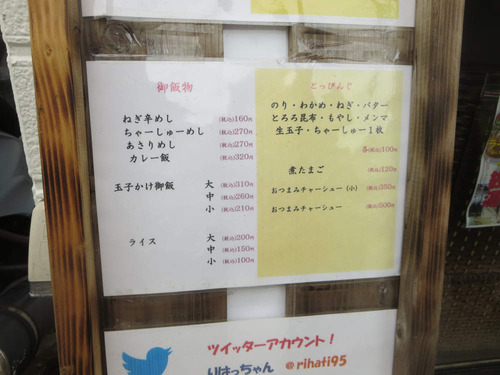 御飯物
ねぎ辛めし (税込)160円
ちゃーしゅーめし (税込)270円
あさりめし (税込)270円
カレー飯 (税込)320円
玉子かけ御飯 大 (税込)310円
中 (税込)260円
小 (税込)210円
ライス 大 (税込)200円
中 (税込)150円
小 (税込)100円
とっぴんぐ
のり・わかめ・ねぎ・バター
とろろ昆布・もやし・メンマ
生玉子・ちゃーしゅー1枚
各(税込)100円
煮たまご (税込)120円
おつまみチャーシュー (小) (税込)350円
おつまみチャーシュー (税込)500円
ツイッターアカウント!
りはっちゃん @rihati95